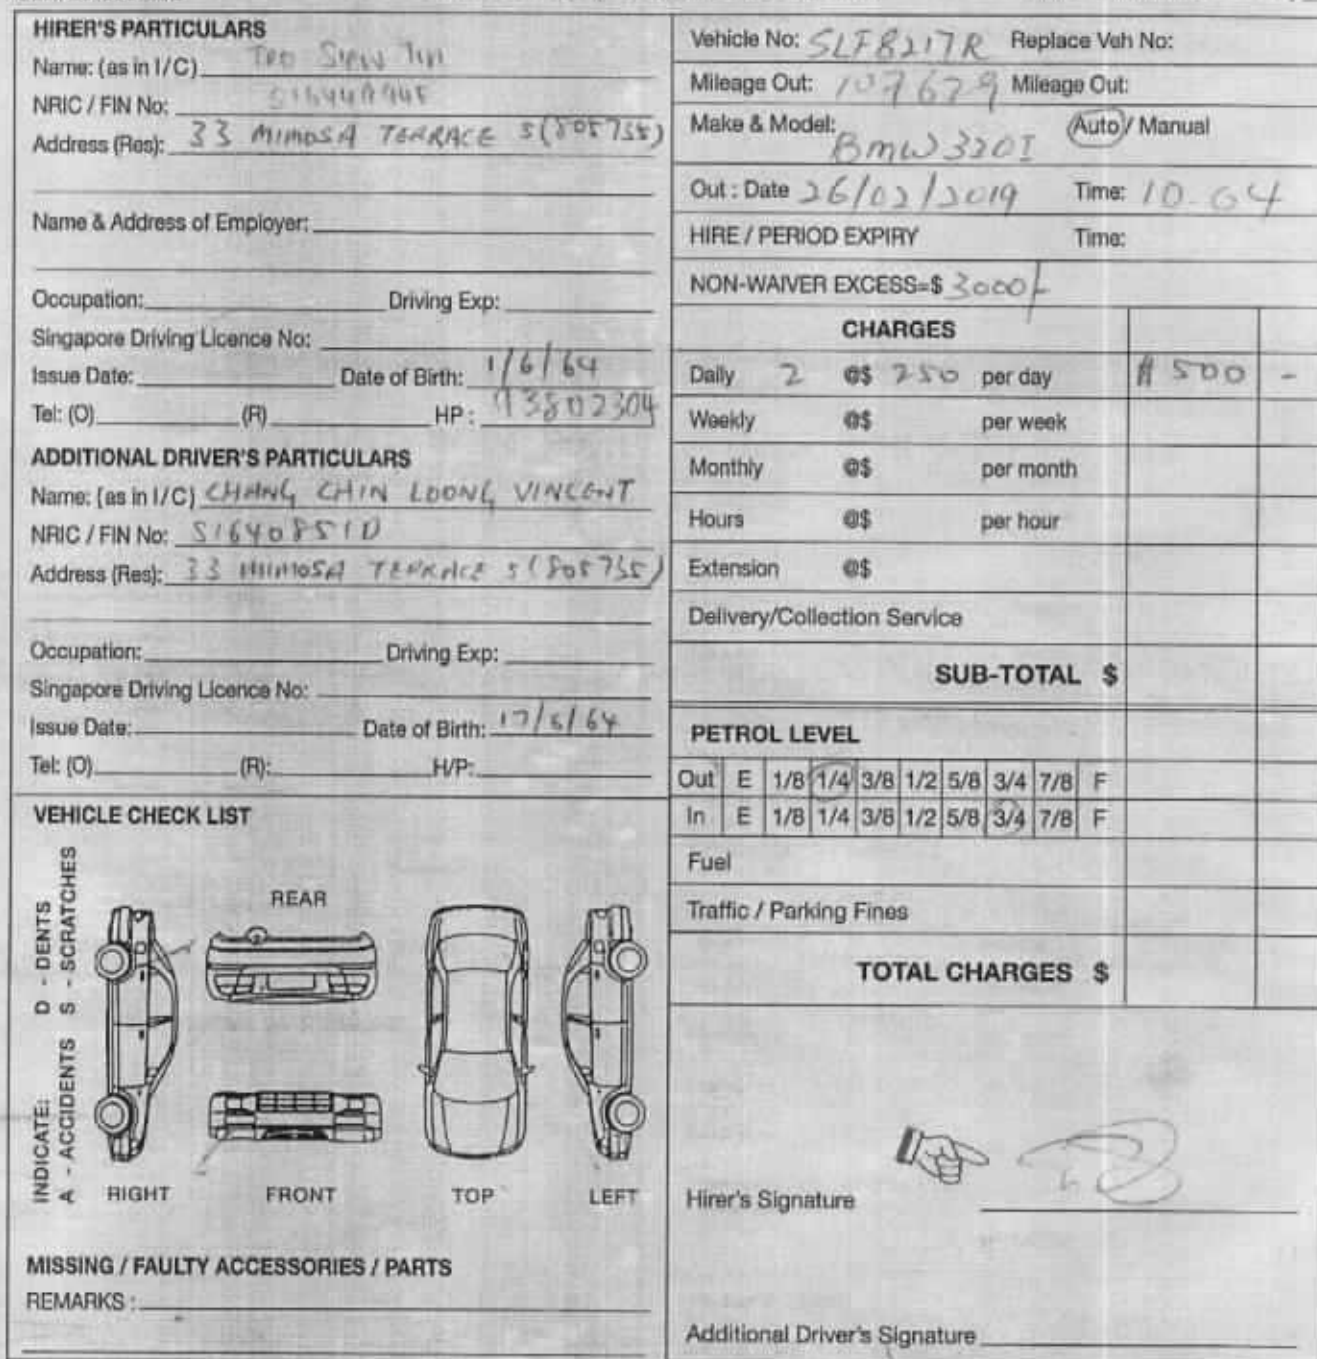 HIRER'S PARTICULARS
Name: (as in I/C)
NRIC / FIN No:
Address (Res): 33 MIMOSA TERRACE S(805735)
Name & Address of Employer:
Occupation: Driving Exp:
Singapore Driving Licence No:
Issue Date: Date of Birth: 1/6/64
Tel: (O) (R) HP: 93802304
ADDITIONAL DRIVER'S PARTICULARS
Name: (as in I/C) CHANG CHIN LOONG VINCENT
NRIC / FIN No: S1640851D
Address (Res): 33 MIMOSA TERRACE S(805735)
Occupation: Driving Exp:
Singapore Driving Licence No:
Issue Date: Date of Birth:
Tel: (O) (R): H/P:
VEHICLE CHECK LIST
INDICATE: D - DENTS
A - ACCIDENTS S - SCRATCHES
REAR
RIGHT FRONT TOP LEFT
MISSING / FAULTY ACCESSORIES / PARTS
REMARKS :
Vehicle No: SLF8217R Replace Veh No:
Mileage Out: 107629 Mileage Out:
Make & Model: BMW 320I Auto / Manual
Out : Date 26/02/2019 Time: 10.04
HIRE / PERIOD EXPIRY Time:
NON-WAIVER EXCESS=$ 3000/-
CHARGES
Daily 2 @$ 250 per day $500 -
Weekly @$ per week
Monthly @$ per month
Hours @$ per hour
Extension @$
Delivery/Collection Service
SUB-TOTAL $
PETROL LEVEL
Out E 1/8 1/4 3/8 1/2 5/8 3/4 7/8 F
In E 1/8 1/4 3/8 1/2 5/8 3/4 7/8 F
Fuel
Traffic / Parking Fines
TOTAL CHARGES $
Hirer's Signature
Additional Driver's Signature